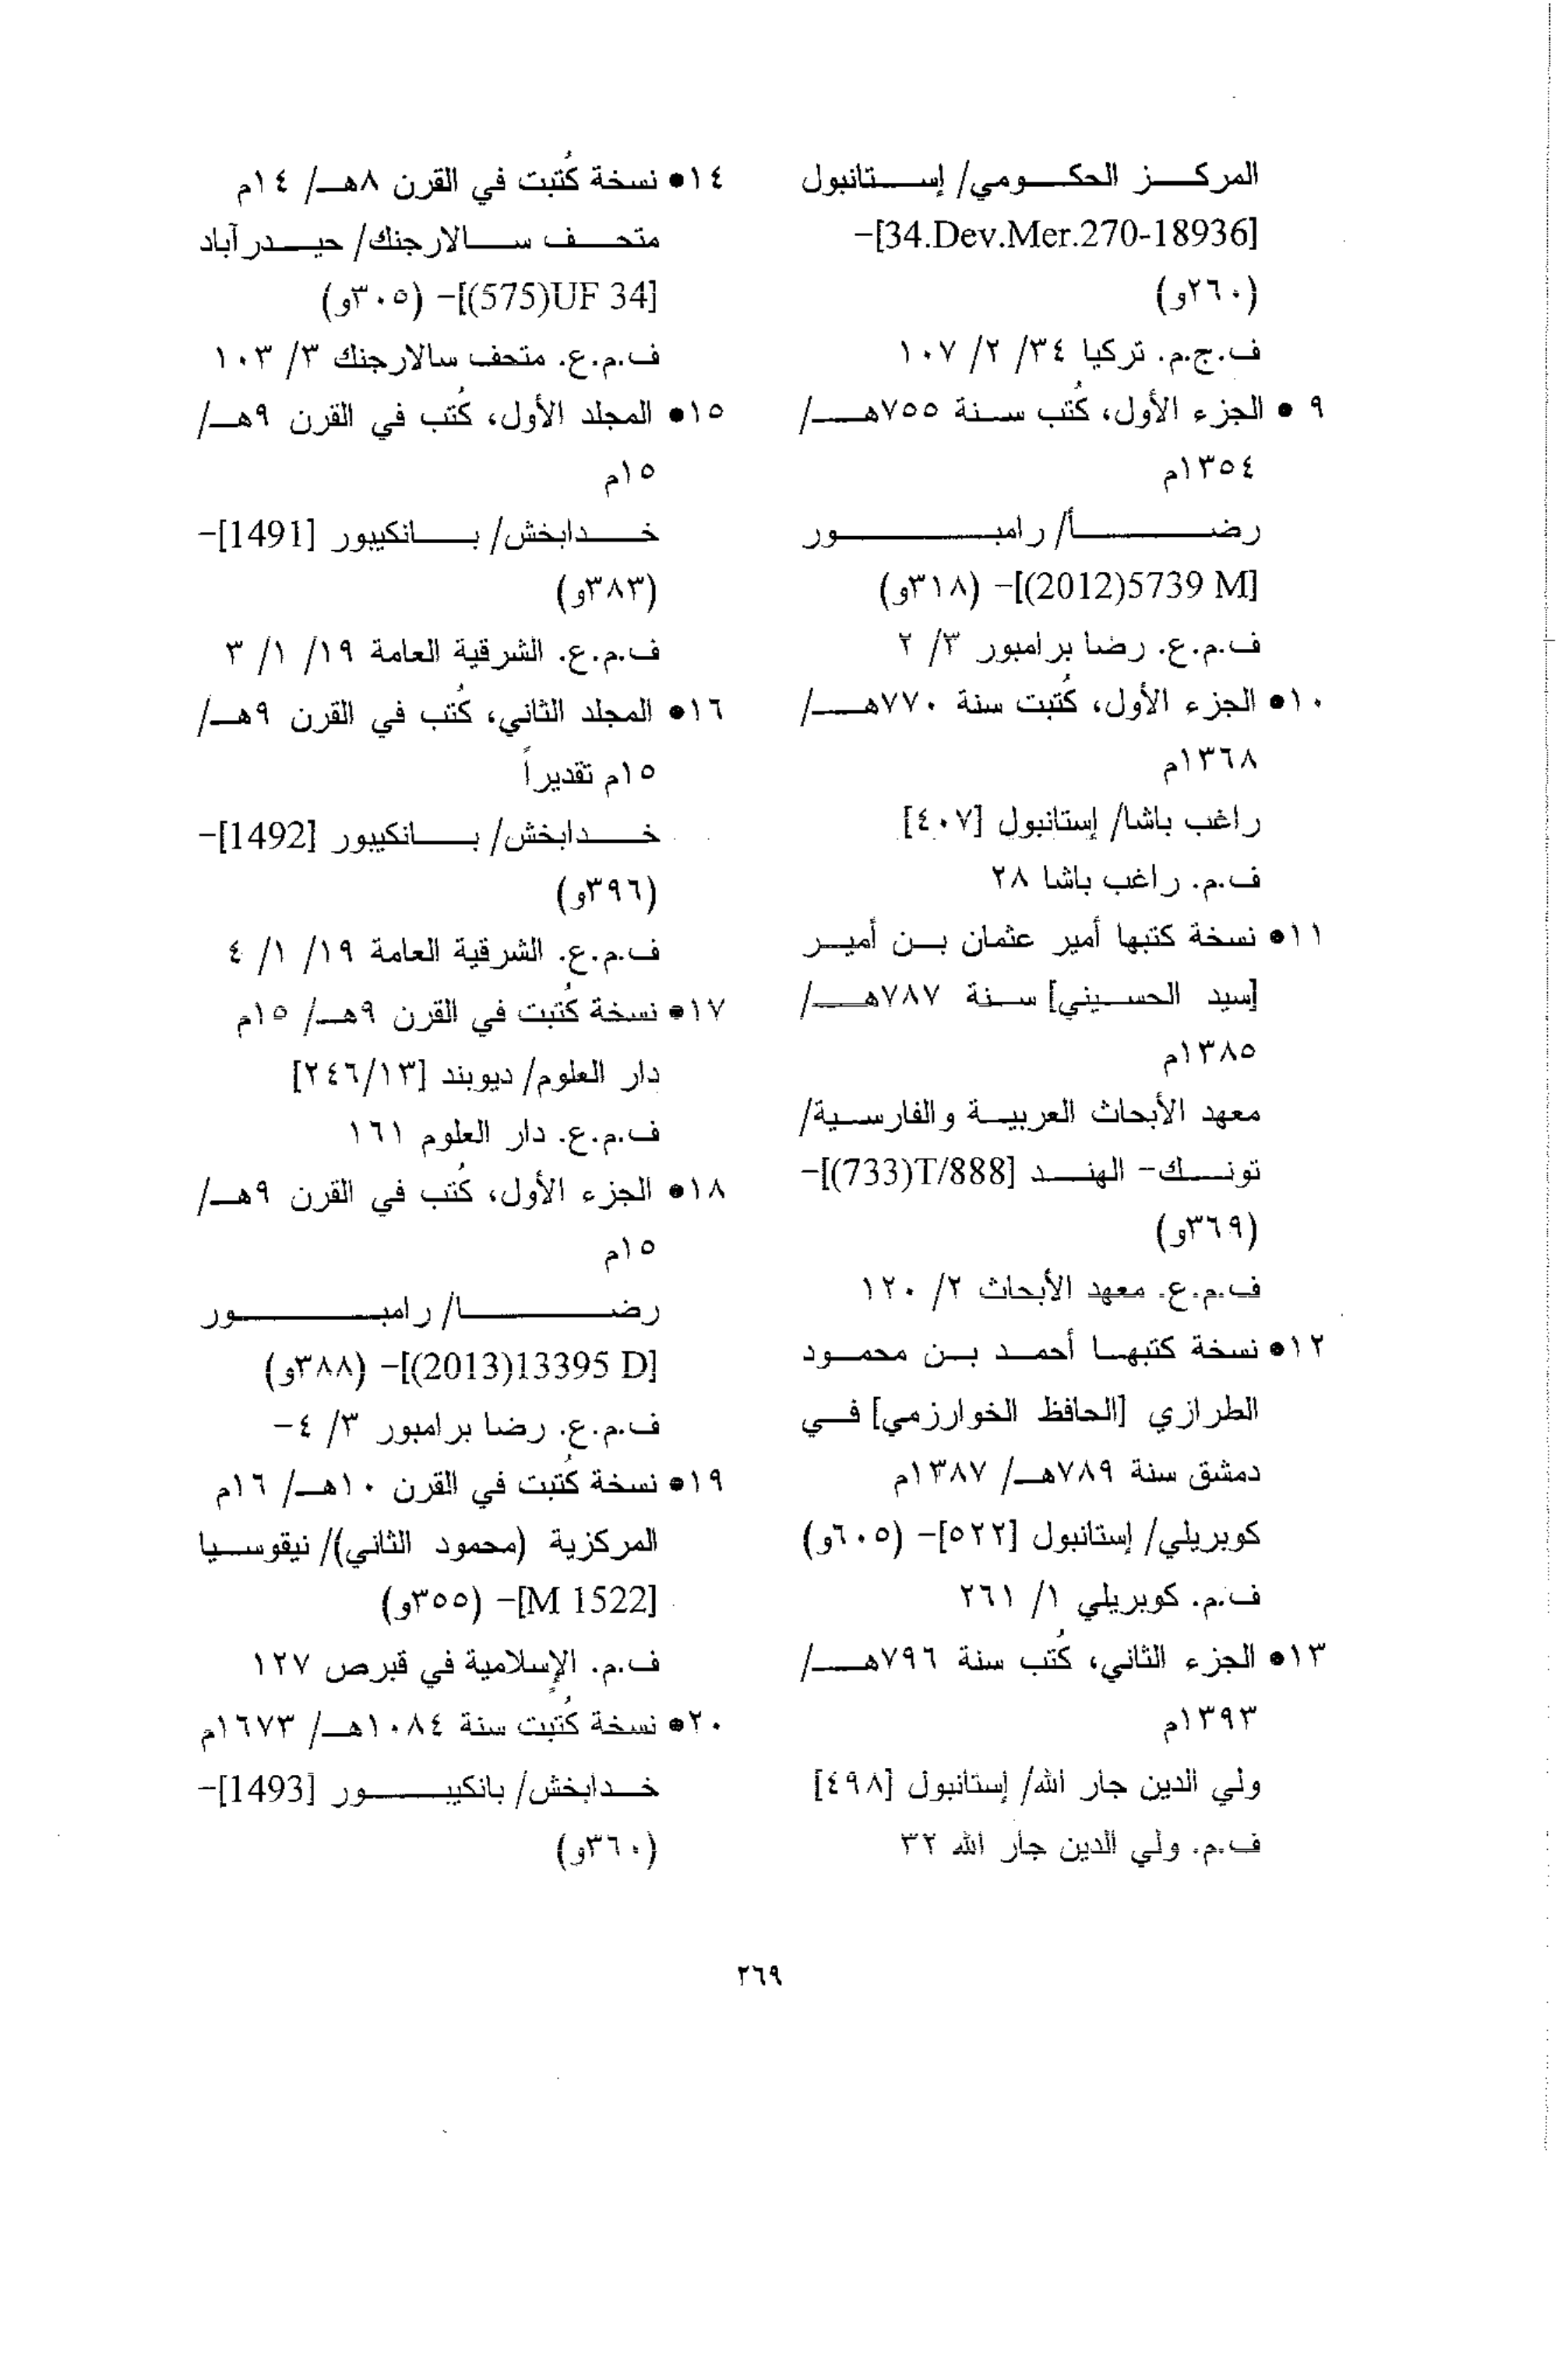 المركز الحكومي/ إستانبول
[34.Dev.Mer.270-18936]-
(٢٦٠و)
ف.ج.م. تركيا ٣٤/ ٢/ ١٠٧
٩ • الجزء الأول، كُتب سنة ٧٥٥هـ/
١٣٥٤م
رضا/ رامبور
[M 5739(2012)]- (٣١٨و)
ف.م.ع. رضا برامبور ٣/ ٢
١٠• الجزء الأول، كُتبت سنة ٧٧٠هـ/
١٣٦٨م
راغب باشا/ إستانبول [٤٠٧]
ف.م. راغب باشا ٢٨
١١• نسخة كتبها أمير عثمان بن أمير
[سيد الحسيني] سنة ٧٨٧هـ/
١٣٨٥م
معهد الأبحاث العربية والفارسية/
تونك- الهند [T/888(733)]-
(٣٦٩و)
ف.م.ع. معهد الأبحاث ٢/ ١٢٠
١٢• نسخة كتبها أحمد بن محمود
الطرازي [الحافظ الخوارزمي] في
دمشق سنة ٧٨٩هـ/ ١٣٨٧م
كوبريلي/ إستانبول [٥٢٢]- (٦٠٥و)
ف.م. كوبريلي ١/ ٢٦١
١٣• الجزء الثاني، كُتب سنة ٧٩٦هـ/
١٣٩٣م
ولي الدين جار الله/ إستانبول [٤٩٨]
ف.م. ولي الدين جار الله ٣٢
١٤• نسخة كُتبت في القرن ٨هـ/ ١٤م
متحف سالارجنك/ حيدرآباد
[UF 34(575)]- (٣٠٥و)
ف.م.ع. متحف سالارجنك ٣/ ١٠٣
١٥• المجلد الأول، كُتب في القرن ٩هـ/
١٥م
خدابخش/ بانكيبور [1491]-
(٣٨٣و)
ف.م.ع. الشرقية العامة ١٩/ ١/ ٣
١٦• المجلد الثاني، كُتب في القرن ٩هـ/
١٥م تقديراً
خدابخش/ بانكيبور [1492]-
(٣٩٦و)
ف.م.ع. الشرقية العامة ١٩/ ١/ ٤
١٧• نسخة كُتبت في القرن ٩هـ/ ١٥م
دار العلوم/ ديوبند [٢٤٦/١٣]
ف.م.ع. دار العلوم ١٦١
١٨• الجزء الأول، كُتب في القرن ٩هـ/
١٥م
رضا/ رامبور
[D 13395(2013)]- (٣٨٨و)
ف.م.ع. رضا برامبور ٣/ ٤-
١٩• نسخة كُتبت في القرن ١٠هـ/ ١٦م
المركزية (محمود الثاني)/ نيقوسيا
[M 1522]- (٣٥٥و)
ف.م. الإسلامية في قبرص ١٢٧
٢٠• نسخة كُتبت سنة ١٠٨٤هـ/ ١٦٧٣م
خدابخش/ بانكيبور [1493]-
(٣٦٠و)
٢٦٩